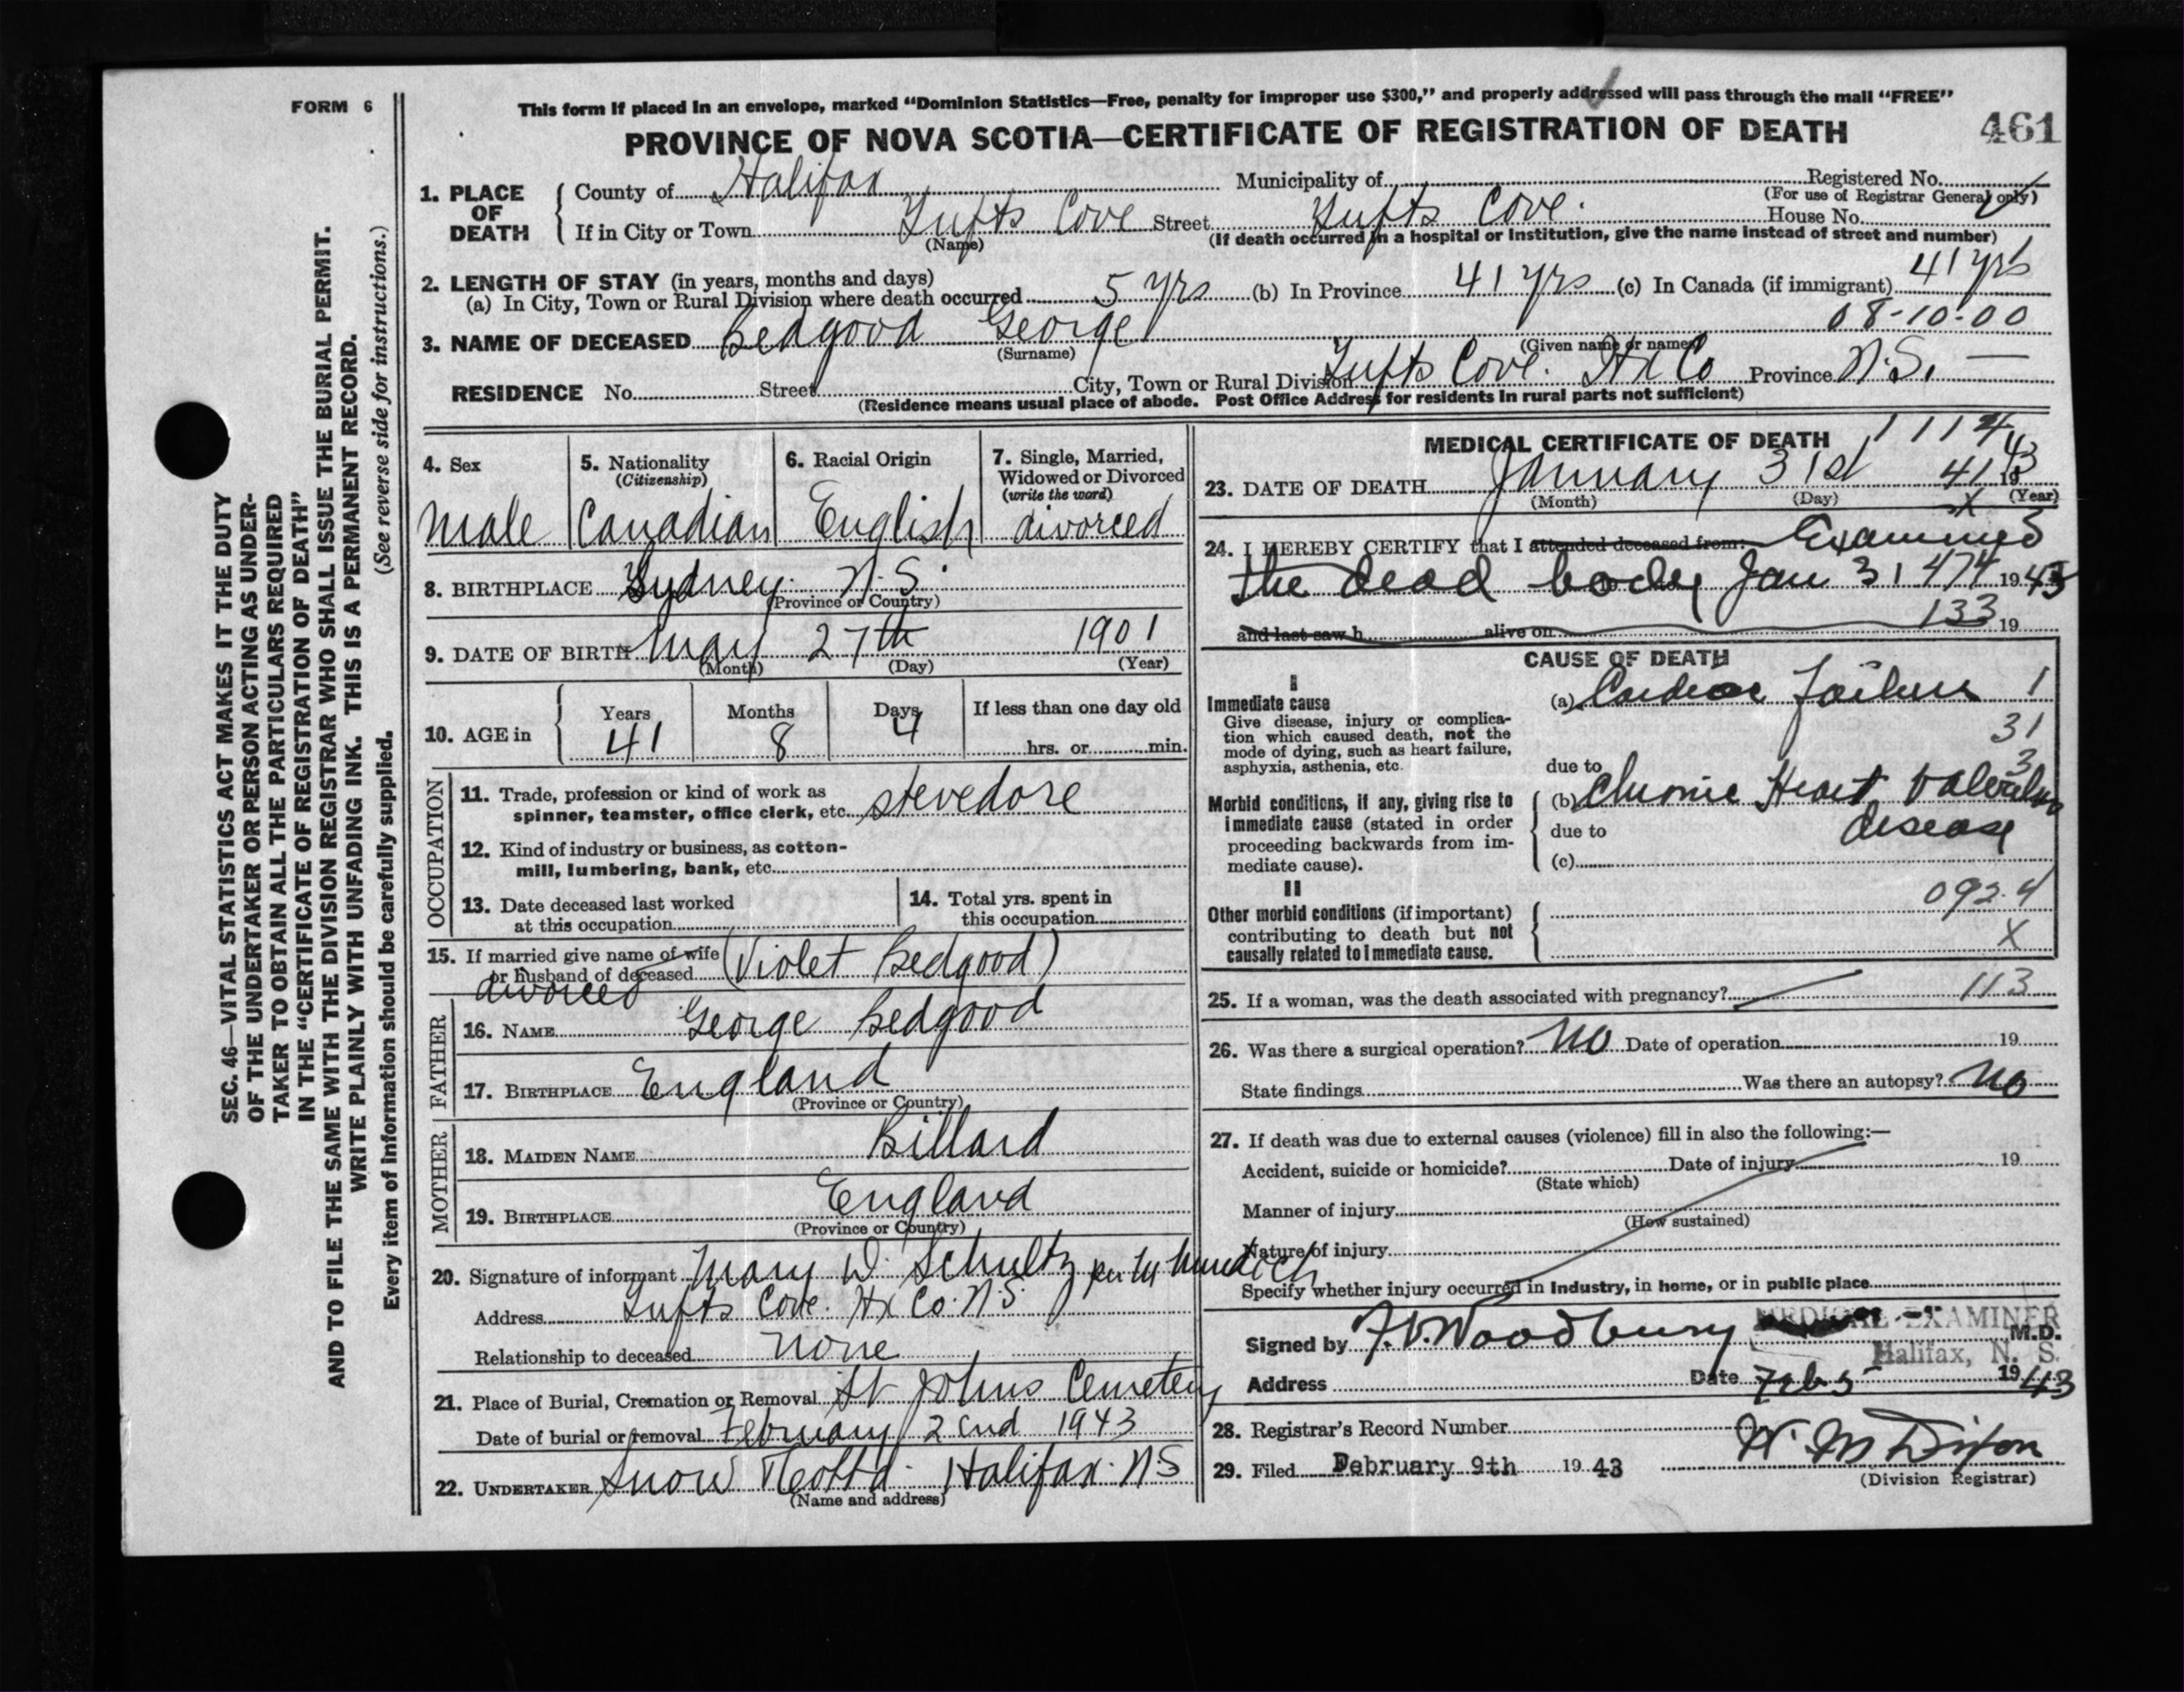 FORM 6
This form if placed in an envelope, marked “Dominion Statistics—Free, penalty for improper use $300,” and properly addressed will pass through the mail “FREE”
PROVINCE OF NOVA SCOTIA—CERTIFICATE OF REGISTRATION OF DEATH
461
1. PLACE OF DEATH
County of Halifax Municipality of Registered No.
(For use of Registrar General only)
If in City or Town Tufts Cove Street Tufts Cove. House No.
(Name) (If death occurred in a hospital or institution, give the name instead of street and number)
2. LENGTH OF STAY (in years, months and days)
(a) In City, Town or Rural Division where death occurred 5 yrs (b) In Province 41 yrs (c) In Canada (if immigrant) 41 yrs
08-10-00
3. NAME OF DECEASED Bedgood George
(Surname) (Given name or names)
RESIDENCE No. Street City, Town or Rural Division Tufts Cove. Hx Co Province N.S. —
(Residence means usual place of abode. Post Office Address for residents in rural parts not sufficient)
4. Sex
male
5. Nationality
(Citizenship)
Canadian
6. Racial Origin
English
7. Single, Married,
Widowed or Divorced
(write the word)
divorced
8. BIRTHPLACE Sydney. N.S.
(Province or Country)
9. DATE OF BIRTH May 27th 1901
(Month) (Day) (Year)
10. AGE in
Years Months Days If less than one day old
41 8 4 hrs. or min.
OCCUPATION
11. Trade, profession or kind of work as
spinner, teamster, office clerk, etc. stevedore
12. Kind of industry or business, as cotton-
mill, lumbering, bank, etc.
13. Date deceased last worked
at this occupation
14. Total yrs. spent in
this occupation
15. If married give name of wife
or husband of deceased (Violet Bedgood)
divorced
FATHER
16. NAME George Bedgood
17. BIRTHPLACE England
(Province or Country)
MOTHER
18. MAIDEN NAME Billard
19. BIRTHPLACE England
(Province or Country)
20. Signature of informant Mary W. Schultz per M
Address Tufts Cove. Hx Co. N.S.
Relationship to deceased None
21. Place of Burial, Cremation or Removal St Johns Cemetery
Date of burial or removal February 2nd 1943
22. UNDERTAKER Snow & Co Ltd. Halifax. N.S
(Name and address)
MEDICAL CERTIFICATE OF DEATH 1114
23. DATE OF DEATH January 31st 41 19 43
(Month) (Day) (Year)
x
24. I HEREBY CERTIFY that I attended deceased from: Examined
the dead body Jan 31 474 1943
and last saw h alive on 133 19
CAUSE OF DEATH
I
Immediate cause
Give disease, injury or complica-
tion which caused death, not the
mode of dying, such as heart failure,
asphyxia, asthenia, etc.
(a) Cardiac Failure 1
31
3
due to
Morbid conditions, if any, giving rise to
immediate cause (stated in order
proceeding backwards from im-
mediate cause).
(b) Chronic Heart Valvular
due to disease
(c)
II
Other morbid conditions (if important)
contributing to death but not
causally related to immediate cause.
092.4
X
25. If a woman, was the death associated with pregnancy? 113
26. Was there a surgical operation? No Date of operation 19
State findings Was there an autopsy? No
27. If death was due to external causes (violence) fill in also the following:—
Accident, suicide or homicide? Date of injury 19
(State which)
Manner of injury
(How sustained)
Nature of injury
Specify whether injury occurred in Industry, in home, or in public place
Signed by F. V. Woodbury MEDICAL EXAMINER M.D.
Halifax, N. S.
Address Date Feb 5 1943
28. Registrar's Record Number
29. Filed February 9th 1943 W. M Dixon
(Division Registrar)
SEC. 46—VITAL STATISTICS ACT MAKES IT THE DUTY
OF THE UNDERTAKER OR PERSON ACTING AS UNDER-
TAKER TO OBTAIN ALL THE PARTICULARS REQUIRED
IN THE “CERTIFICATE OF REGISTRATION OF DEATH”
AND TO FILE THE SAME WITH THE DIVISION REGISTRAR WHO SHALL ISSUE THE BURIAL PERMIT.
WRITE PLAINLY WITH UNFADING INK. THIS IS A PERMANENT RECORD.
(See reverse side for instructions.)
Every item of information should be carefully supplied.